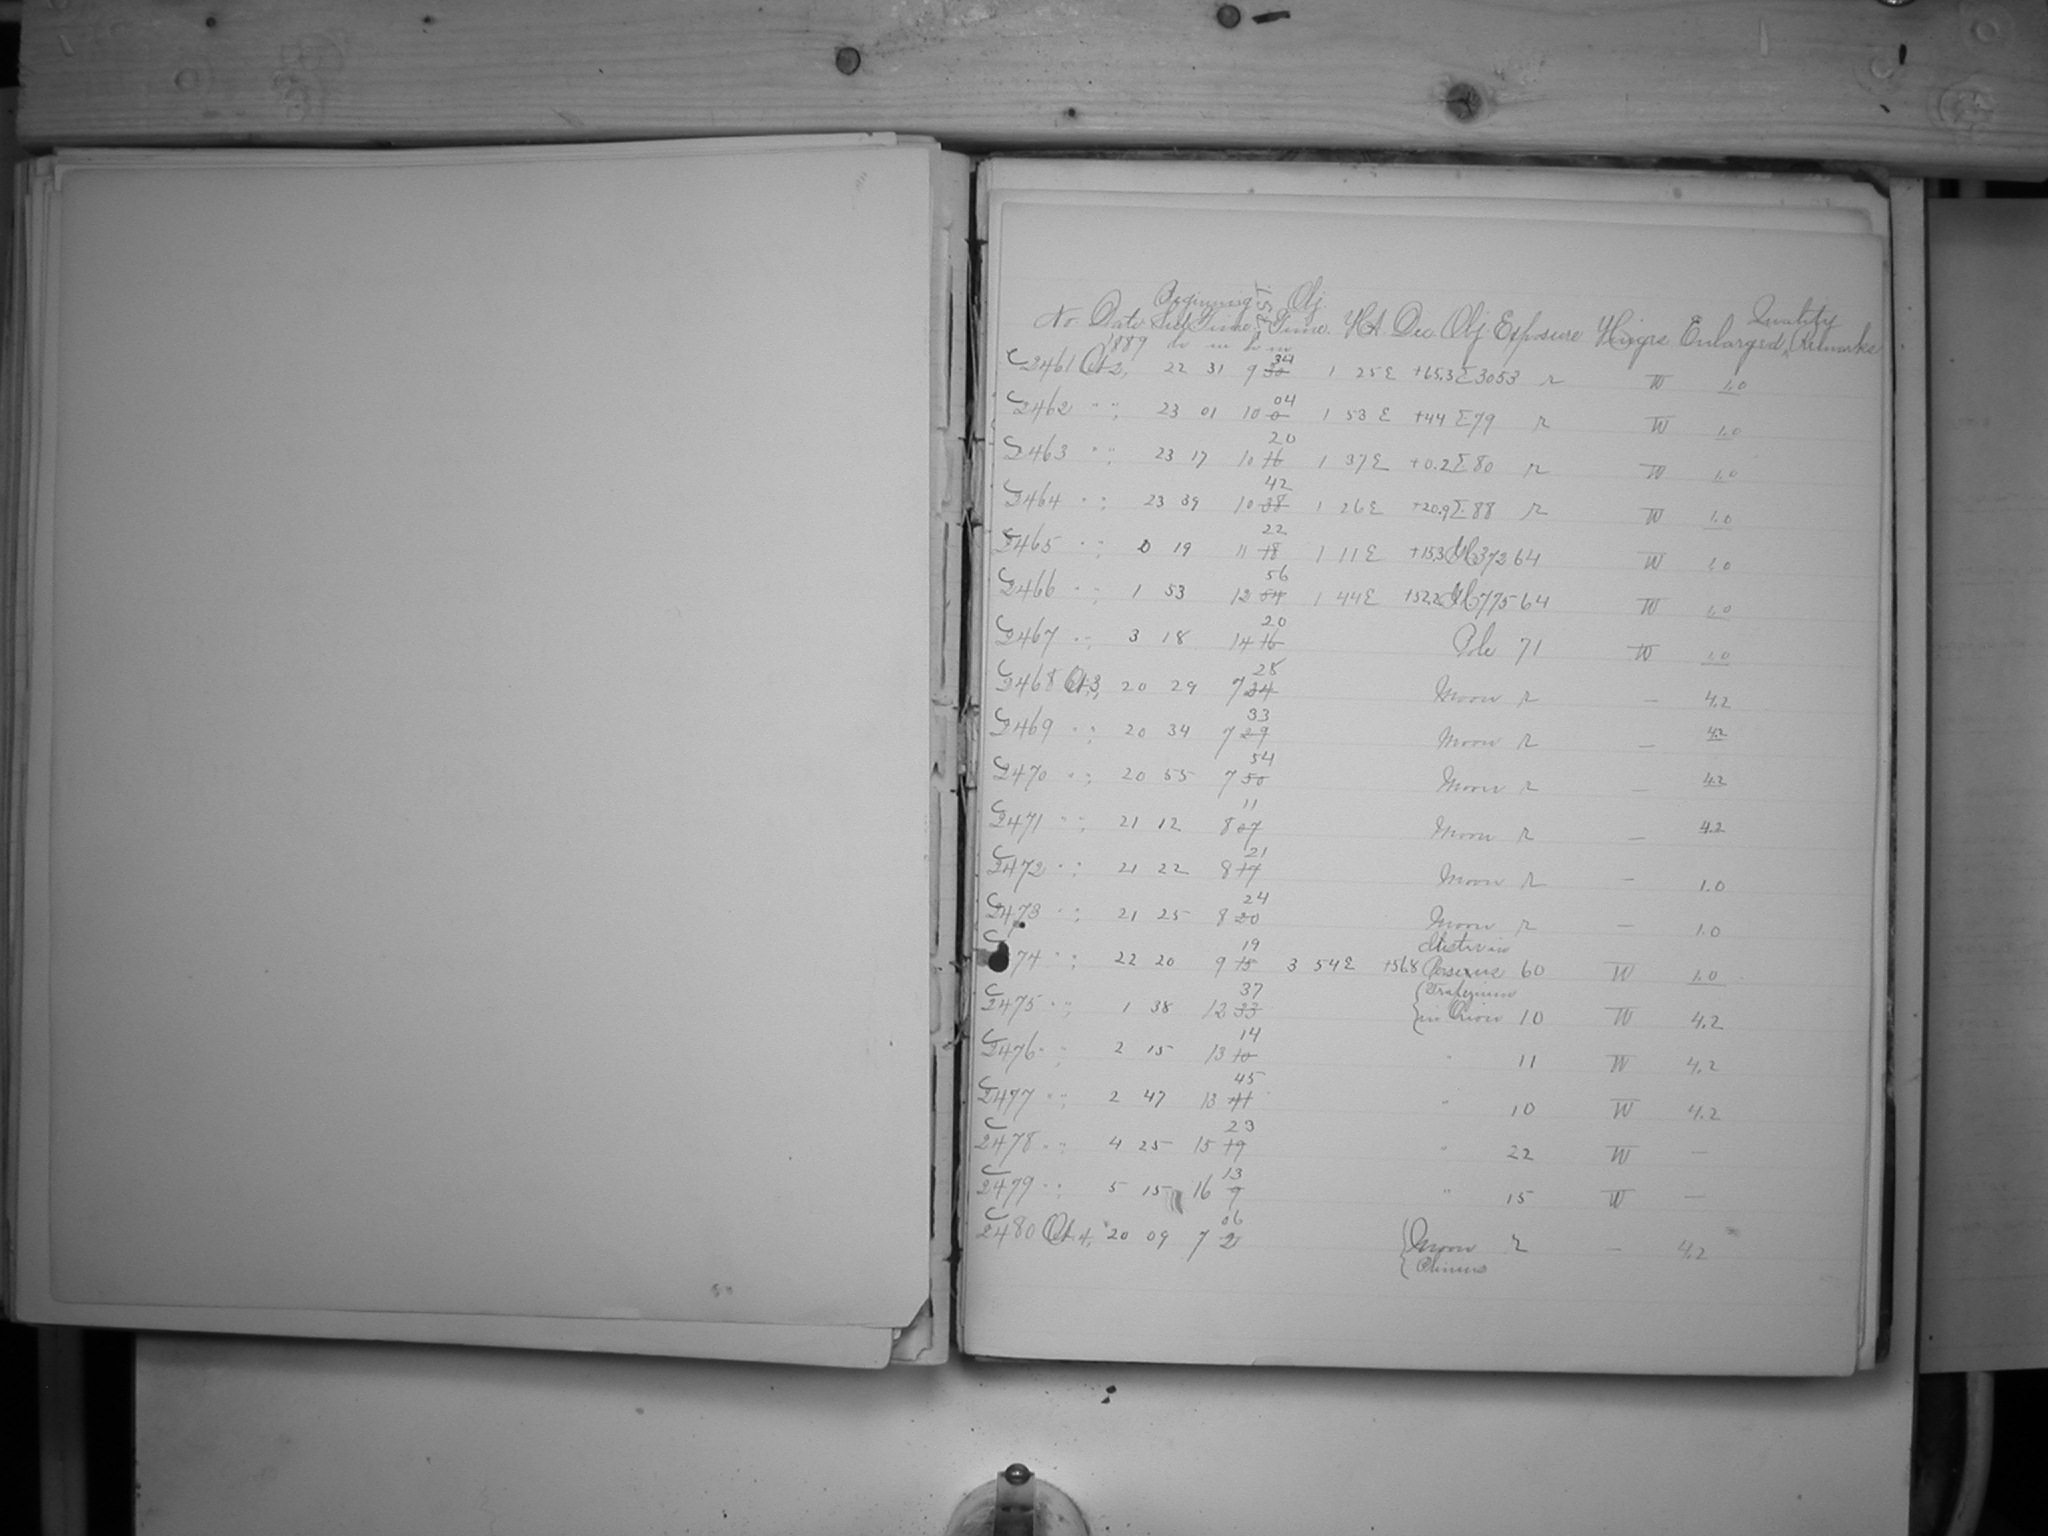 Beginning Obj.
No. Date Sid Time P.S.T. Time. H.A. Dec. Obj. Exposure Hinge Enlarged Quality Remarks
1889 h m h m
C2461 Oct 2, 22 31 9 30 34 1 25 E +65.3 Σ3053 r W 1.0
C2462 " " 23 01 10 0 04 1 53 E +44 Σ79 r W 1.0
C2463 " " 23 17 10 16 20 1 37 E +0.2 Σ80 r W 1.0
C2464 " " 23 39 10 38 42 1 26 E +20.9 Σ88 r W 1.0
C2465 " " 0 19 11 18 22 1 11 E +15.3 372 64 W 1.0
C2466 " " 1 53 12 54 56 1 44 E +52.2 775 64 W 1.0
C2467 " " 3 18 14 16 20 Pole 71 W 1.0
C2468 Oct 3, 20 29 7 24 28 Moon r — 4.2
C2469 " " 20 34 7 29 33 Moon r — 4.2
C2470 " " 20 55 7 50 54 Moon r — 4.2
C2471 " " 21 12 8 07 11 Moon r — 4.2
C2472 " " 21 22 8 17 21 Moon r — 1.0
C2473 " " 21 25 8 20 24 Moon r — 1.0
C 74 " " 22 20 9 15 19 3 54 E +56.8 Cluster in Perseus 60 W 1.0
C2475 " " 1 38 12 33 37 Trapezium in Orion 10 W 4.2
C2476 " " 2 15 13 10 14 " 11 W 4.2
C2477 " " 2 47 13 41 45 " 10 W 4.2
C2478 " " 4 25 15 19 23 " 22 W —
C2479 " " 5 15 16 9 13 " 15 W —
C2480 Oct 4, 20 09 7 2 06 Moon r — 4.2